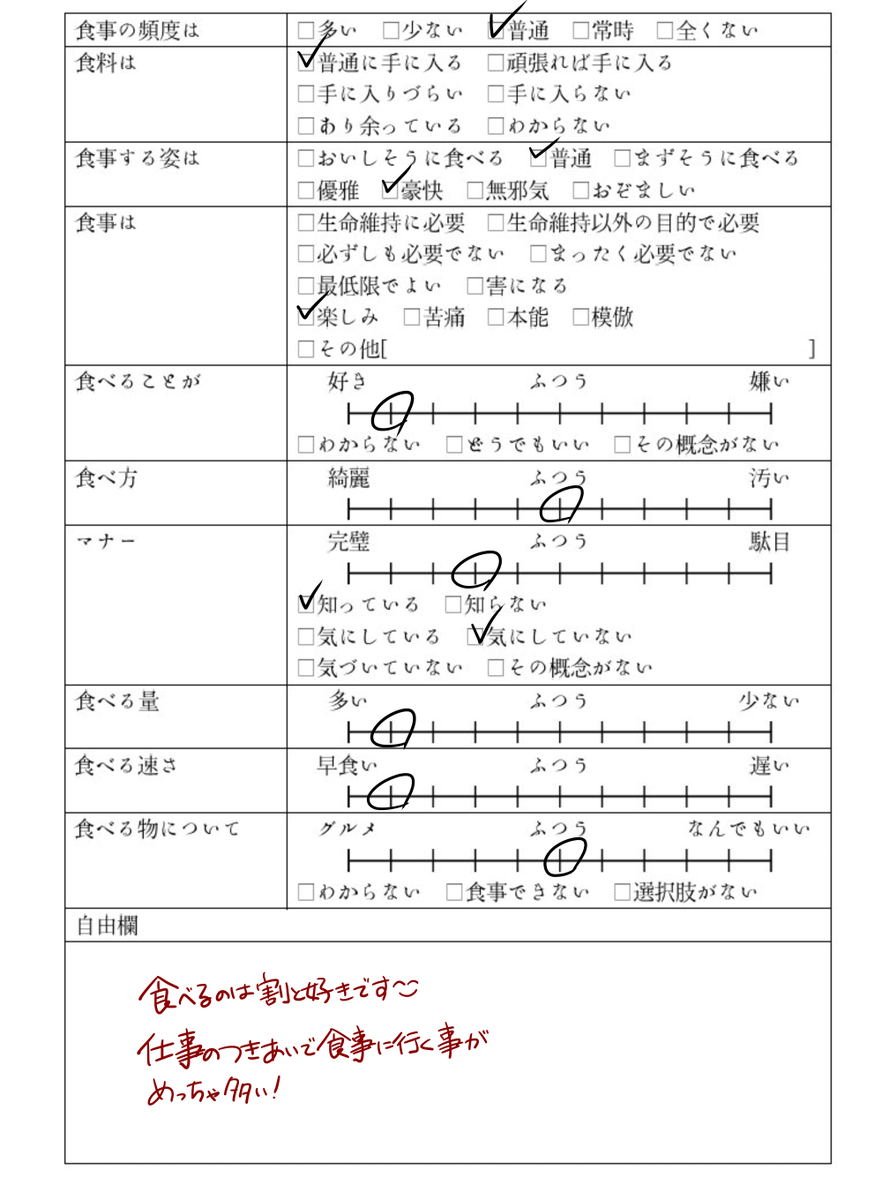 食事の頻度は □多い □少ない ☑普通 □常時 □全くない
食料は ☑普通に手に入る □頑張れば手に入る
□手に入りづらい □手に入らない
□あり余っている □わからない
食事する姿は □おいしそうに食べる ☑普通 □まずそうに食べる
□優雅 ☑豪快 □無邪気 □おぞましい
食事は □生命維持に必要 □生命維持以外の目的で必要
□必ずしも必要でない □まったく必要でない
□最低限でよい □害になる
☑楽しみ □苦痛 □本能 □模倣
□その他[ ]
食べることが 好き ふつう 嫌い
□わからない □どうでもいい □その概念がない
食べ方 綺麗 ふつう 汚い
マナー 完璧 ふつう 駄目
☑知っている □知らない
□気にしている ☑気にしていない
□気づいていない □その概念がない
食べる量 多い ふつう 少ない
食べる速さ 早食い ふつう 遅い
食べる物について グルメ ふつう なんでもいい
□わからない □食事できない □選択肢がない
自由欄
食べるのは割と好きです〜
仕事のつきあいで食事に行く事が
めっちゃ多い!